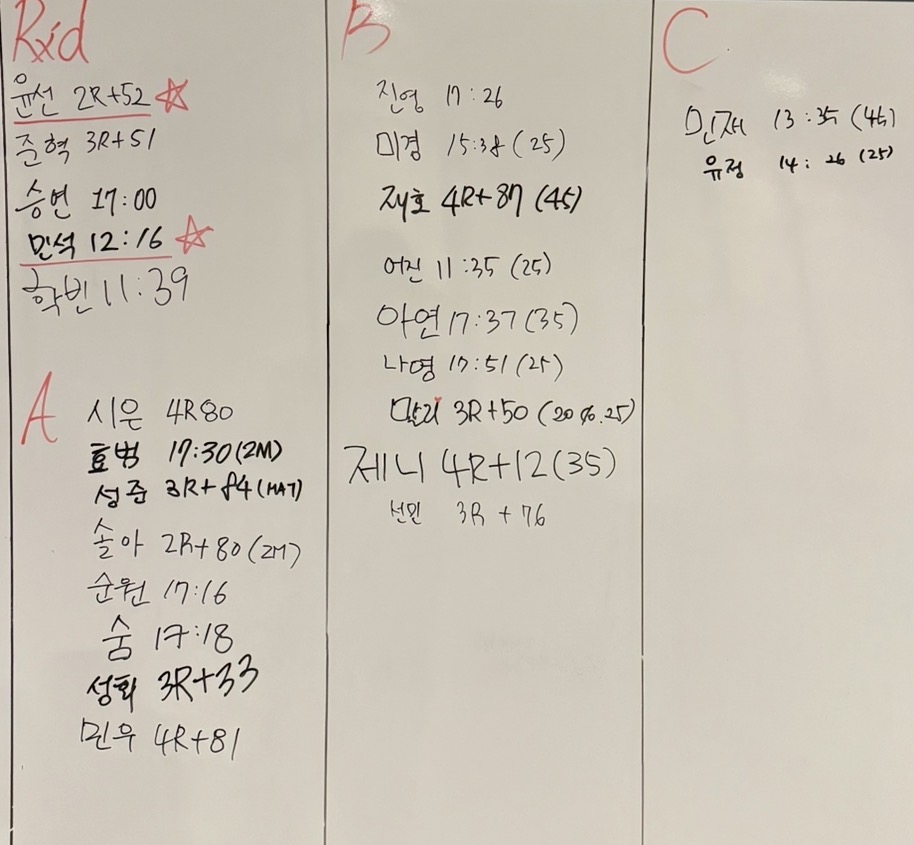 Rxd
윤선 2R+52
준혁 3R+51
승연 17:00
민석 12:16
학빈 11:39
A
시은 4R80
효범 17:30(2M)
성준 3R+84(MAT)
솔아 2R+80(2M)
순원 17:16
숨 17:18
성회 3R+33
민우 4R+81
B
진영 17:26
미경 15:38(25)
재호 4R+87(45)
어진 11:35(25)
아연 17:37(35)
나영 17:51(25)
3R+50(20%.25)
제니 4R+12(35)
선민 3R+76
C
민재 13:35(45)
유정 14:26(25)